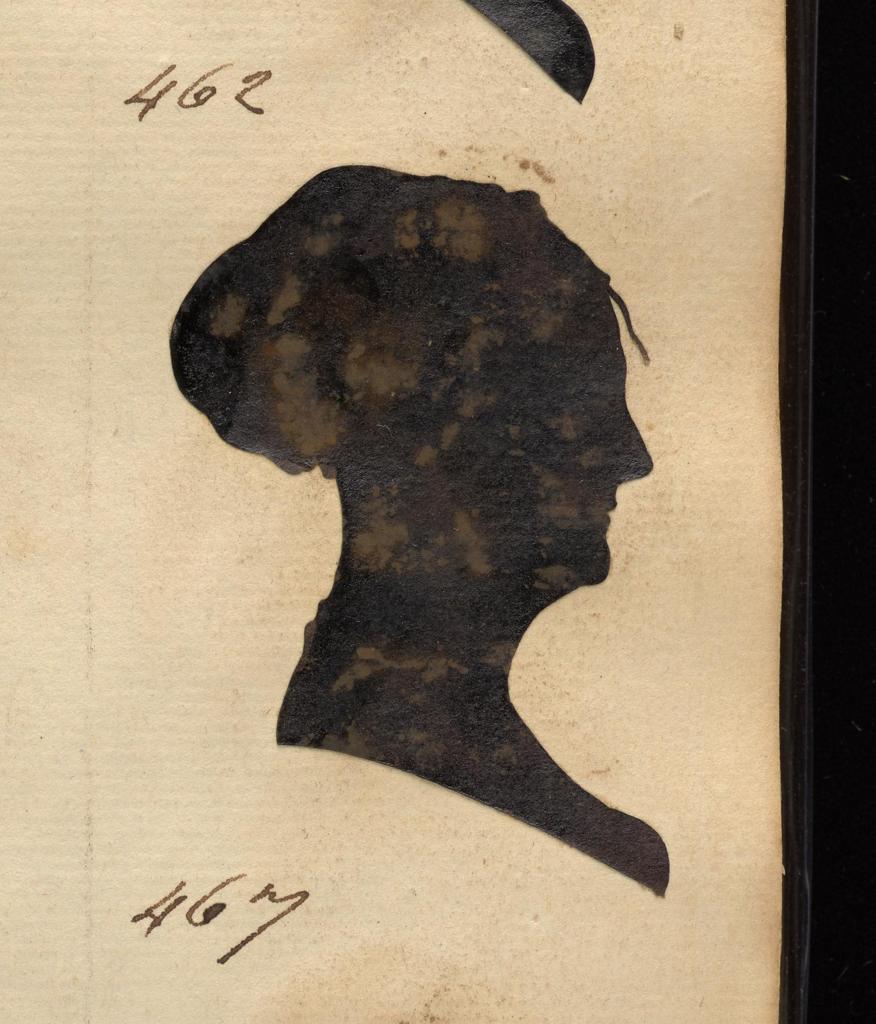 462
467